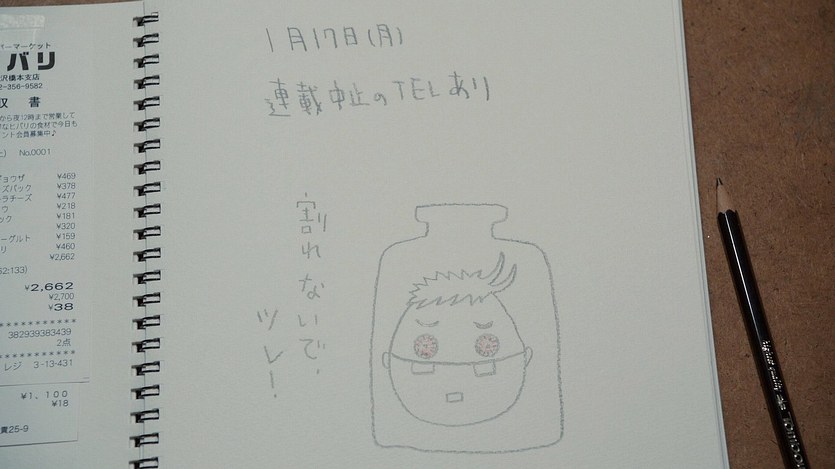 パーマーケット
バリ
沢橋本支店
2-356-9582
収 書
から夜12時まで営業して
なヒバリの食材で今日も
ント会員募集中♪
No.0001
ギョウザ ¥469
ズパック ¥378
ラチーズ ¥477
ウ ¥218
ック ¥181
¥320
ーグルト ¥159
リ ¥460
¥2,662
62:133)
¥2,662
¥2,700
¥38
382939383439
2点
レジ 3-13-431
¥1,100
¥18
費25-9
1月17日(月)
連載中止のTELあり
割れないで、
ツレ!